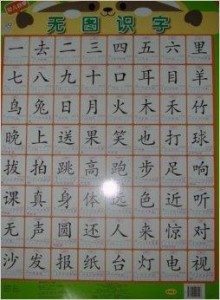 无图识字
一去二三四五六里
七八九十口耳目羊
鸟兔日月火木禾竹
晚上送果笑也打球
拔拍跳高跑步足响
课真身体远色近听
无声圆还人来惊对
沙发报纸台灯电视